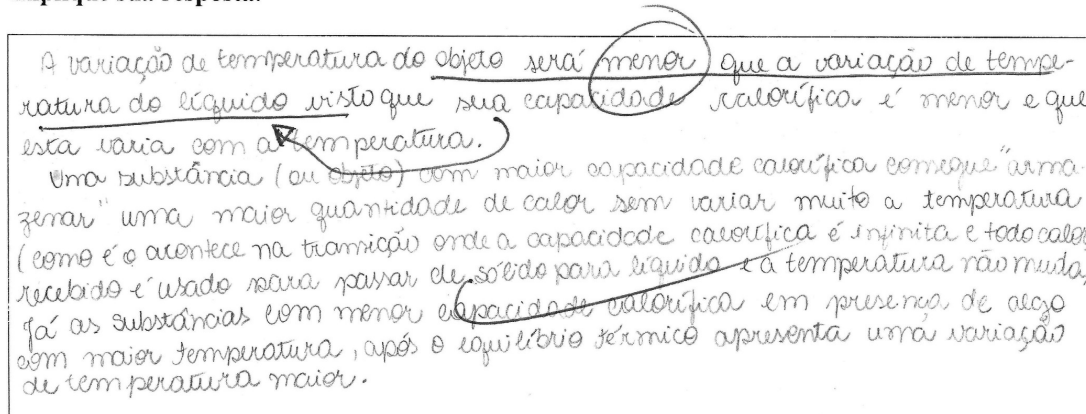 A variação de temperatura do objeto será menor que a variação de tempe-
ratura do líquido visto que sua capacidade calorífica é menor e que
esta varia com a temperatura.
Uma substância (ou objeto) com maior capacidade calorífica consegue "arma-
zenar" uma maior quantidade de calor sem variar muito a temperatura
(como é o acontece na transição onde a capacidade calorífica é infinita e todo calor
recebido é usado para passar de sólido para líquido e a temperatura não muda,
Já as substâncias com menor capacidade calorífica em presença de algo
com maior temperatura, após o equilíbrio térmico apresenta uma variação
de temperatura maior.